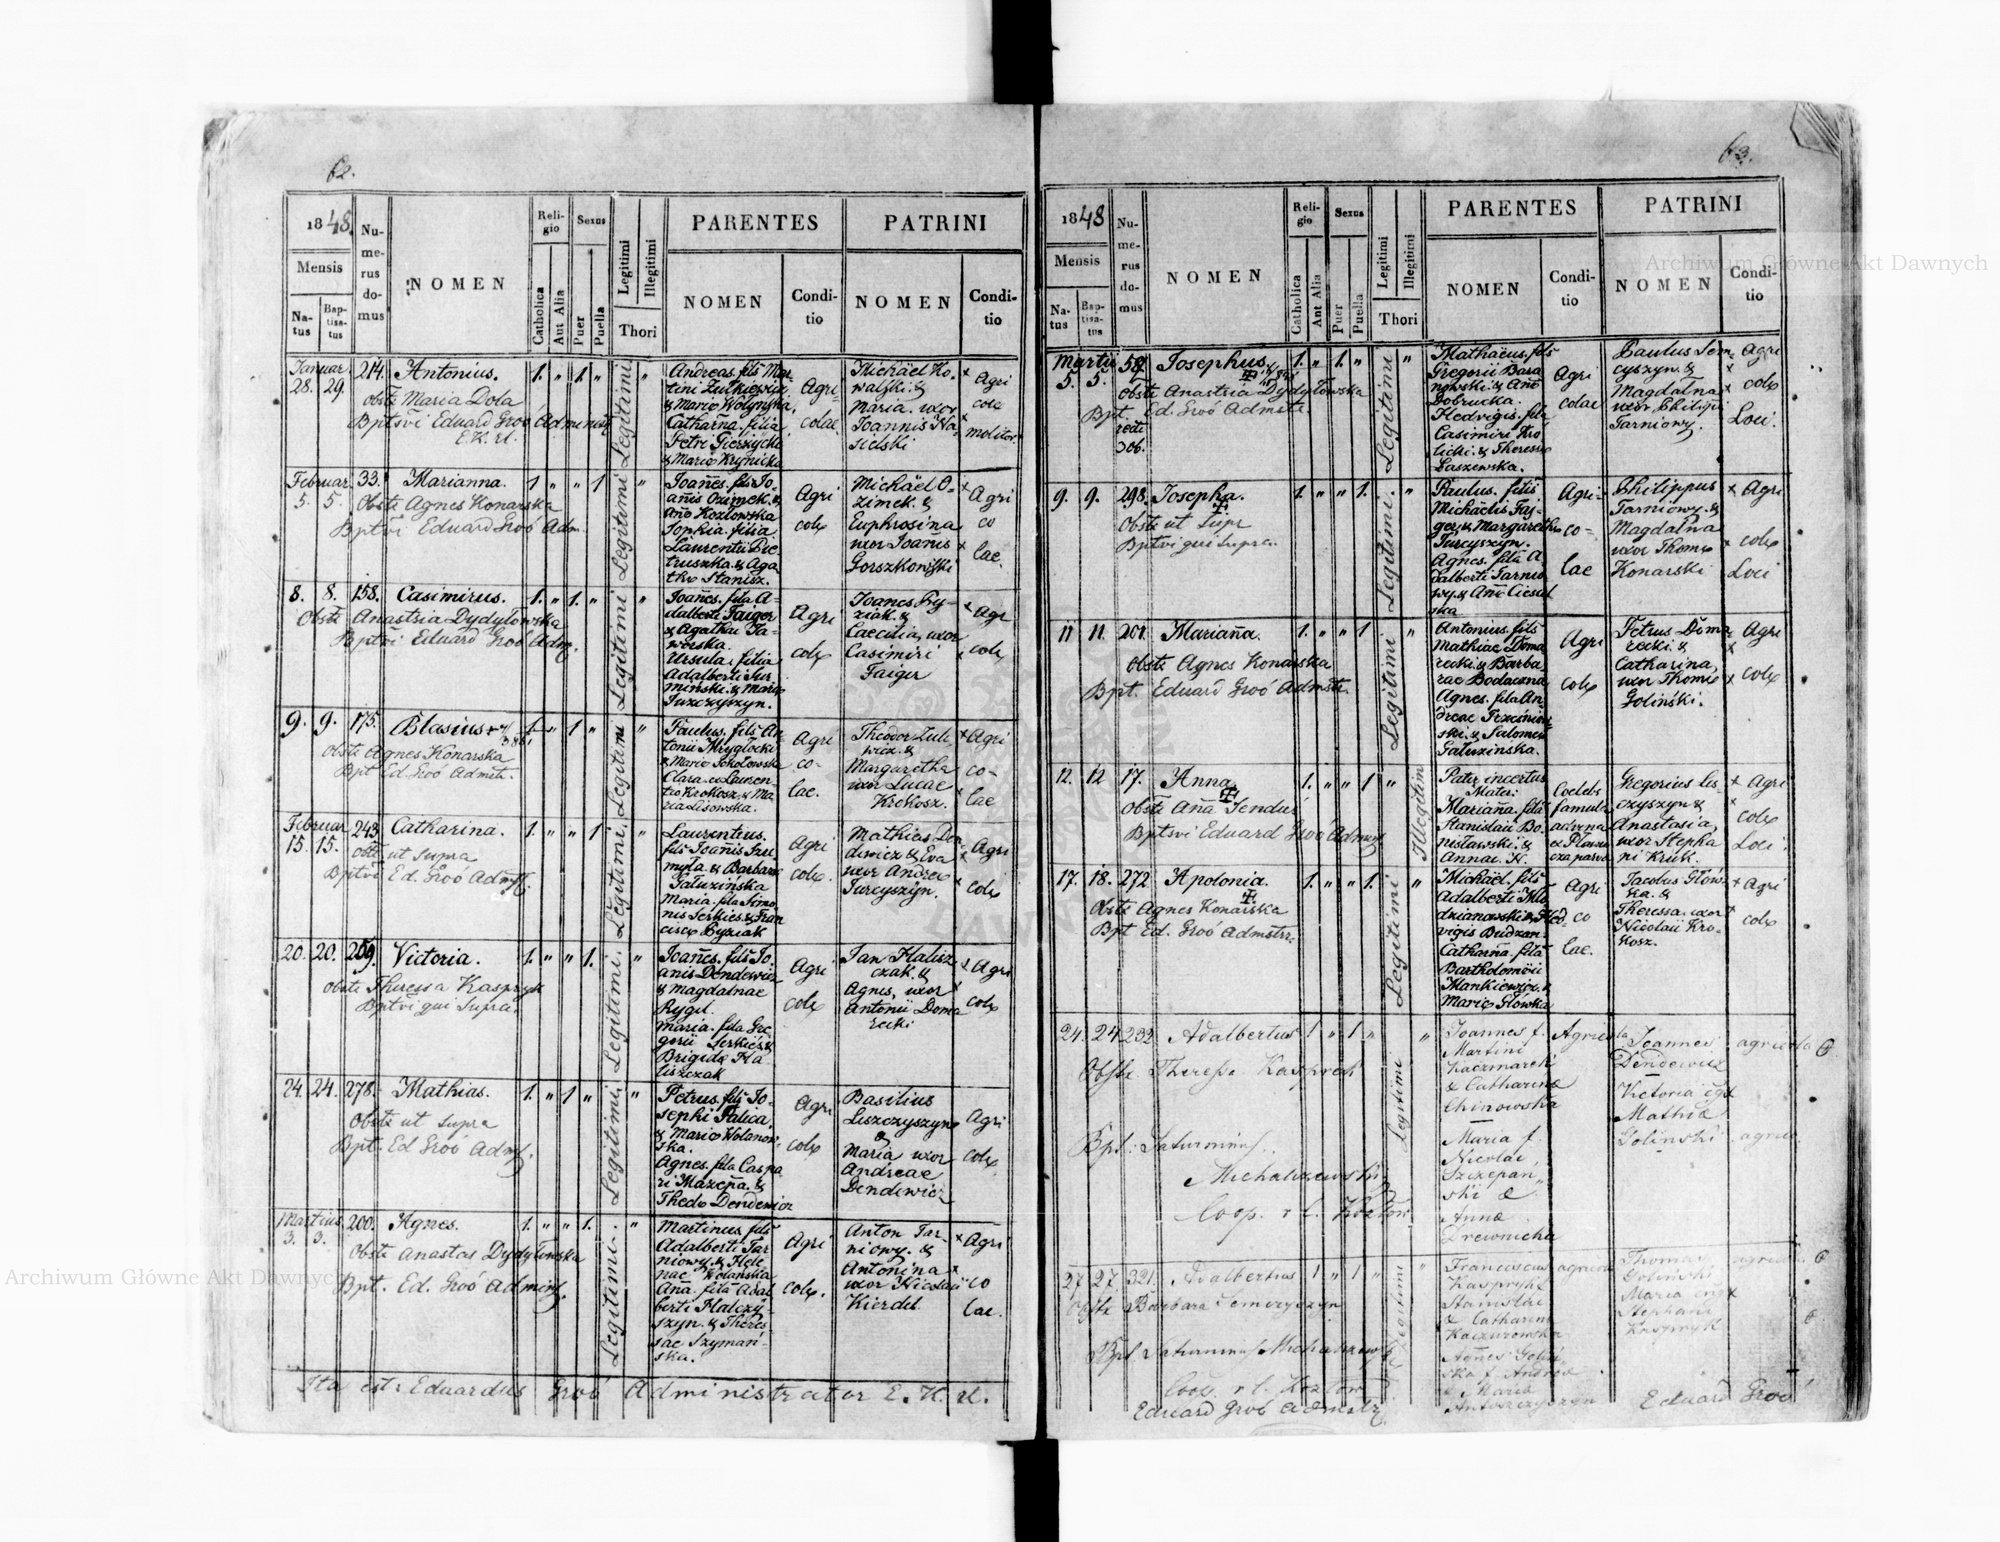 62.
1848.
Mensis
Na-
tus
Bap-
tisa-
tus
Nu-
me-
rus
do-
mus
NOMEN
Reli-
gio
Catholica
Aut Alia
Sexus
Puer
Puella
Legitimi
Illegitimi
Thori
PARENTES
NOMEN
Condi-
tio
PATRINI
NOMEN
Condi-
tio
Januar
28. 29. 214. Antonius. 1. " 1. " Legitimi "
Obste Maria Dola
Bptsvi Eduard Groó Administ
Andreas. fils Mar-
tini Żułkiewicz
& Mario Wołynska,
Catharna. filia
Petri
& Mario Krynicka
Agri-
colae.
Michaël Ko-
walski. &
Maria. uxor
Joannis Ha-
sielski
Agri
colae
molitor
Februar
5. 5. 33. Marianna. 1 " " 1 Legitimi
Obste Agnes Konarska
Bptvi Eduard Groó Adm.
Joañes. fils Jo-
anis Ozimek. &
Año Kozłowska
Sophia. filia
Laurentii Pie-
truszka. & Aga-
tho Stanisz.
Agri
colę
Michäel O-
zimek. &
Euphrosina
uxor Joañis
Gorszkowski
Agri
co
lae.
8. 8. 158. Casimirus. 1. " 1. " Legitimi "
Obste Anastsia Dydyłowska
Bptvi Eduard Groó Adm.
Joañes. fils A-
dalberti Faiger
& Agathae Ja-
worska.
Ursula. filia
Adalberti Sur
minski. & Mario
Juzczyszyn.
Agri
colę
Joanes
ziak. &
Caecilia, uxor
Casimiri
Faiger
Agr
colę
9. 9. 175. Blasius 1. " 1 " Legitimi "
Obste Agnes Konarska
Bpt Ed. Groó Admstr.
Paulus. fils An-
tonii Mrygłocki
& Mario Sokołowska
Clara. ex Lauren-
tio Krokosz. & Ma-
ria Lisowska.
Agri
co-
lae.
Theodor Zuli
wicz. &
Margaretha
uxor Lucae
Krokosz.
Agri
co-
lae
Februar
15. 15. 243 Catharina. 1. " " 1 Legitimi. "
Obste ut supra
Bptvi Ed. Groó Admst
Laurentius.
fils Joañis Szer-
myta. & Barbara
Gałuzińska
Maria. fila Simo-
nis Serkies. & Fran
cisco Pyziak
Agri
colę.
Mathias Den-
dewicz & Eva
uxor Andreo
Jurcyszÿn.
Agri
colę
20. 20. 209. Victoria. 1. " " 1. Legitimi. "
Obste Theressa Kaspryk
Bptvi qui supra.
Joañes. fils Jo-
anis Dendewicz
& Magdalnae
Rygiel.
Maria. fila Gre
gorii Serkies &
Brigida Ha
liszczak
Agri
colę
Jan Halisz
czak. &
Agnes, uxor
Antonii Doma
recki
Agri
colę
24. 24. 278. Mathias. 1. " 1 " Legitimi. "
Obste ut supra
Bpt. Ed Groó Admst.
Petrus. fils Jo-
sephi Halica,
& Mario Wolanow-
ska.
Agnes. fila Caspa
ri Mazepa. &
Thedo Dendewicz
Agri
colę
Basilius
Liszczyszyn
&
Maria uxor
Andreae
Dendewicz
Agri
colę
Martius
3. 3. 200. Agnes. 1. " " 1. Legitimi. "
Obste Anastas Dydyłowska
Bpt. Ed. Groó Adminst.
Martinus. fils
Adalberti Tar
niowy & Hele
nae Wolańska
Aña. fila Adal
berti Halczy-
szyn. & Theres-
sae Szymań-
ska.
Agri
colę.
Anton Tar-
niowy. &
Antonina
uxor Nicolaii
Kierdel.
Agri
co
lae.
Ita est: Eduardus Groó Administrator E. K. rl.
63.
1848
Mensis
Na-
tus
Bap-
tisa-
tus
Nu-
me-
rus
do-
mus
NOMEN
Reli-
gio
Catholica
Aut Alia
Sexus
Puer
Puella
Legitimi
Illegitimi
Thori
PARENTES
NOMEN
Condi-
tio
PATRINI
NOMEN
Condi-
tio
Martii
5. 5. 58. Josephus. 1. " 1. " Legitimi "
Obste Anastsia Dydyłowska
Bpt. Ed. Groó Admstr.
recte
306.
Mathaeus. fils
Gregorii Bara
nowski. & Año
Dobrucka.
Hedvigis. fila
Casimiri Kro
licki. & Theresso
Laszewska.
Agri
colae
Paulus Sem-
cyszyn. &
Magdalna
uxor Philippi
Tarniowy.
Agri
colę
Loci.
9. 9. 298. Josepha. 1. " " 1. Legitimi. "
Obste ut supr
Bptvi qui supra.
Paulus. fils
Michaelis Faj-
ger. & Margaretha
Jurcyszyn.
Agnes. fila A-
dalberti Tarnio
wy. & Año Ciesiel
ska
Agri-
co-
lae
Philippus
Tarniowy. &
Magdalna
uxor Thomo
Konarski
Agri
colę
Loci
11 11. 201. Mariaña. 1. " " 1 Legitimi "
Obste Agnes Konarska
Bpt. Eduard Groó Admstr.
Antonius. fils
Mathiae Doma
recki. & Barba
rae Bodaczna
Agnes. fila An-
dreae
ski. & Salomea
Gałuzinska.
Agri
colę
Petrus Doma-
recki. &
Catharina,
uxor Thomo
Goliński.
Agri
colę
12. 12 17. Anna 1. " " 1 " Illegitim
Obste Aña Senduś
Bptsvi Eduard Groó Admst
Pater incertus
Mater:
Mariaña. fila
Stanislaii Bo-
nisławski. &
Annae. N.
Coelebs
famula
advena
ex Płau
cza parva
Gregorius Lis-
czyszyn &
Anastasia,
uxor Stepha
ni Kruk.
Agri
colę
Loci.
17. 18. 272 Apolonia. 1. " " 1. Legitimi "
Obste Agnes Konarska
Bpt Ed. Groó Admstr.
Michäel. fils
Adalberti Mło
dzianowski & Hed.
vigis Budzan-
Catharña. fila
Bartholomëii
Mankiewicz. &
Mario Główka
Agri
co
lae.
Jacobus Głów-
ka. &
Theressa. uxor
Nicolaii Kro-
kosz.
Agri
colę
24. 24 232. Adalbertus 1 " 1 " Legitimi "
Obste. Therese Kaspryk
Bpt: Saturninus.
Michałszewski
Coop. r l. Kozłow.
Joannes f.
Martini
Kaczmarek
& Catharinæ
Chinowska
Maria f.
Nicolai
Szczepań"
ski &
Annæ
Drewnicka
Agricola
Joannes
Dendewicz
Victoria cgx
Mathiæ
Golinski
agricola
agrico.
27 27. 321. Adalbertus 1 " 1 " Legitimi "
Obste Barbara Semczyszyn
Bpt Saturninus Michałszewski
Coop. r l. Kozłow
Eduard Groó Admstr.
Franciscus
Kaspryk
Stanislai
& Catharina
Kaczurowska
Agnes Goliń-
ska f. Andreæ
& Maria
Antoszczyszyn
agricola
Thomas
Goliński
Maria cngx
Stephani
Kaspryk
agricola
Eduard Groó
Archiwum Główne Akt Dawnych
Archiwum Główne Akt Dawnych